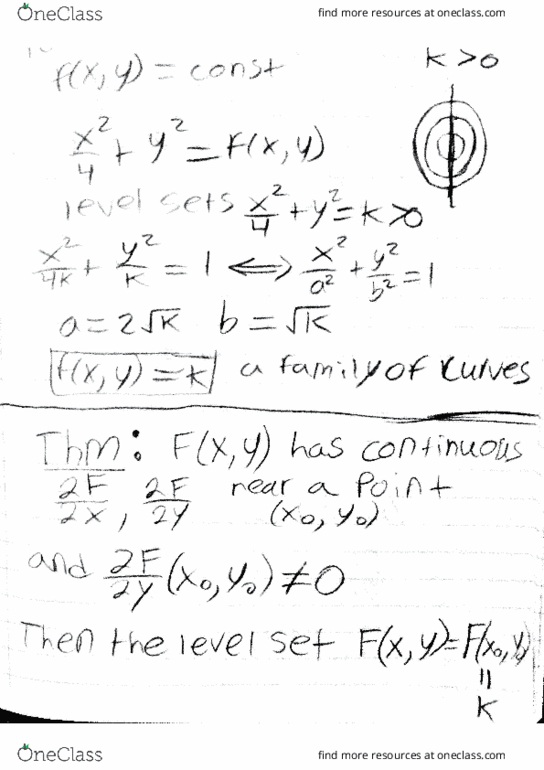 OneClass find more resources at oneclass.com
f(x, y) = const
k > 0
x²/4 + y² = F(x, y)
level sets x²/4 + y² = k > 0
x²/4k + y²/k = 1 ⟺ x²/a² + y²/b² = 1
a = 2√k b = √k
f(x, y) = k a family of curves
Thm: F(x, y) has continuous
∂F/∂x, ∂F/∂y near a point
(x₀, y₀)
and ∂F/∂y (x₀, y₀) ≠ 0
Then the level set F(x, y) = F(x₀, y₀)
=
k
OneClass find more resources at oneclass.com